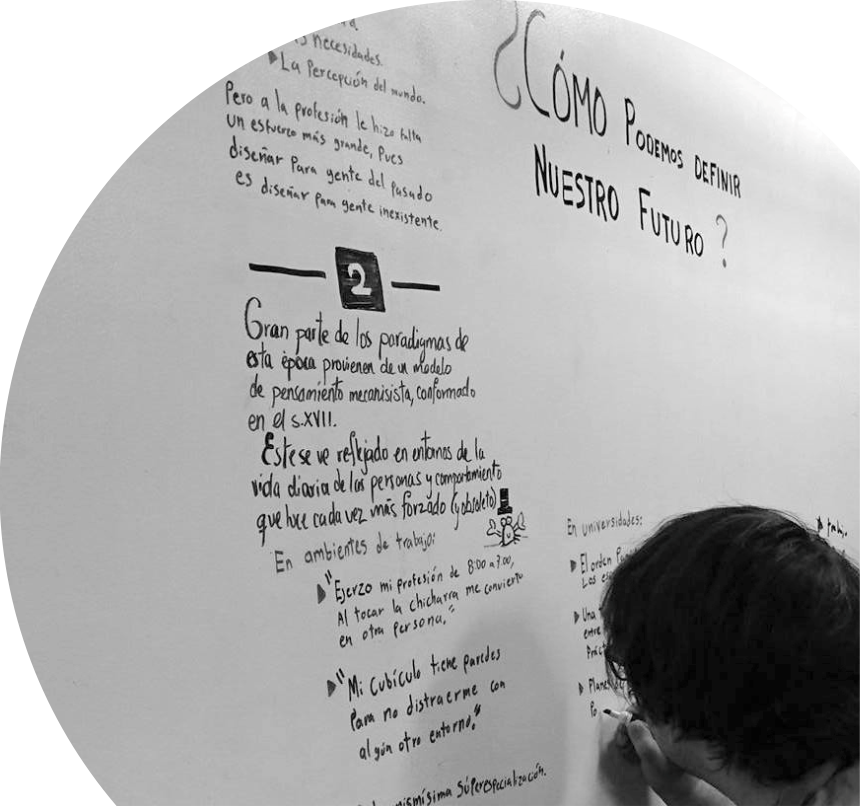 necesidades.
La Percepción del mundo.
Pero a la profesión le hizo falta
un esfuerzo más grande, Pues
diseñar Para gente del pasado
es diseñar para gente inexistente.
2
Gran parte de los paradigmas de
esta época provienen de un modelo
de pensamiento mecanisista, conformado
en el s.XVII.
Este se ve reflejado en entornos de la
vida diaria de las personas y comportamiento
que luce cada vez más forzado (y obsoleto)
En ambientes de trabajo:
"Ejerzo mi profesión de 8:00 a 7:00,
Al tocar la chicharra me convierto
en otra persona."
"Mi cubículo tiene paredes
Para no distraerme con
algún otro entorno."
mismísima súperespecialización.
¿CÓMO PODEMOS DEFINIR
NUESTRO FUTURO?
En universidades:
El orden
Las
Una
entre